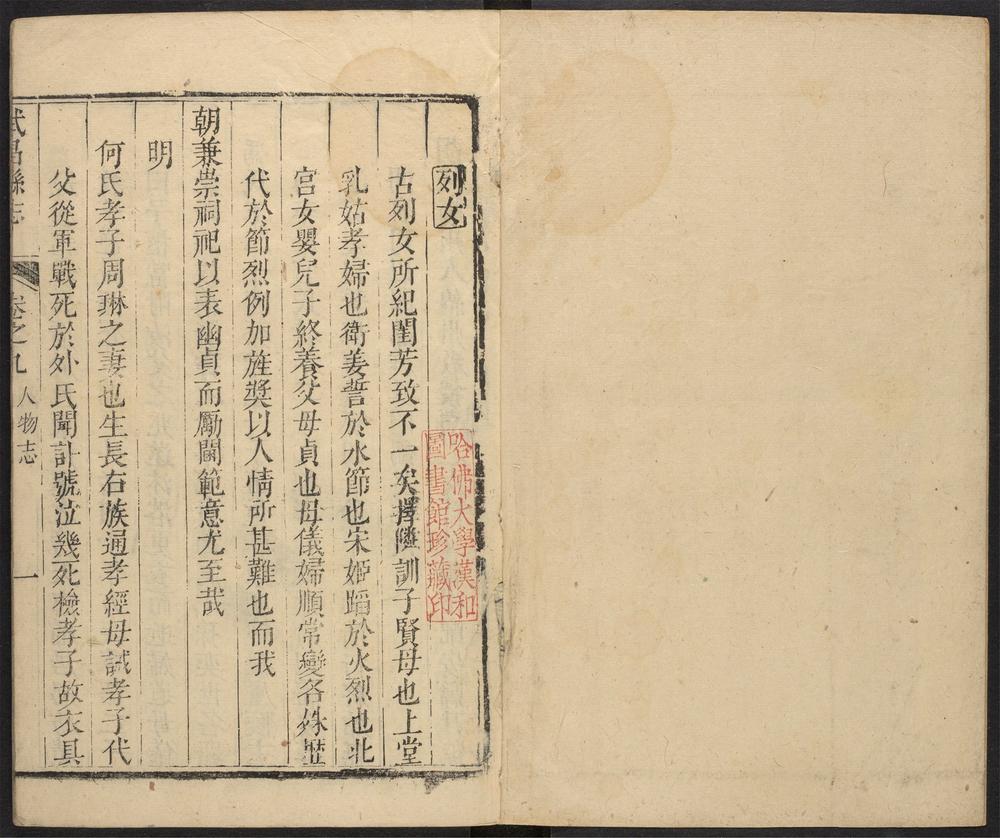 列女
古列女所紀閨芳致不一矣擇隣訓子賢母也上堂
乳姑孝婦也衛姜誓於水節也宋姬蹈於火烈也北
宮女嬰兒子終養父母貞也母儀婦順常變各殊歷
代於節烈例加旌獎以人情所甚難也而我
朝兼崇祠祀以表幽貞而勵閫範意尤至哉
明
何氏孝子周琳之妻也生長右族通孝經母誡孝子代
父從軍戰死於外氏聞訃號泣幾死檢孝子故衣具
武昌縣志 卷之九 人物志 一
哈佛大學漢和
圖書館珍藏印